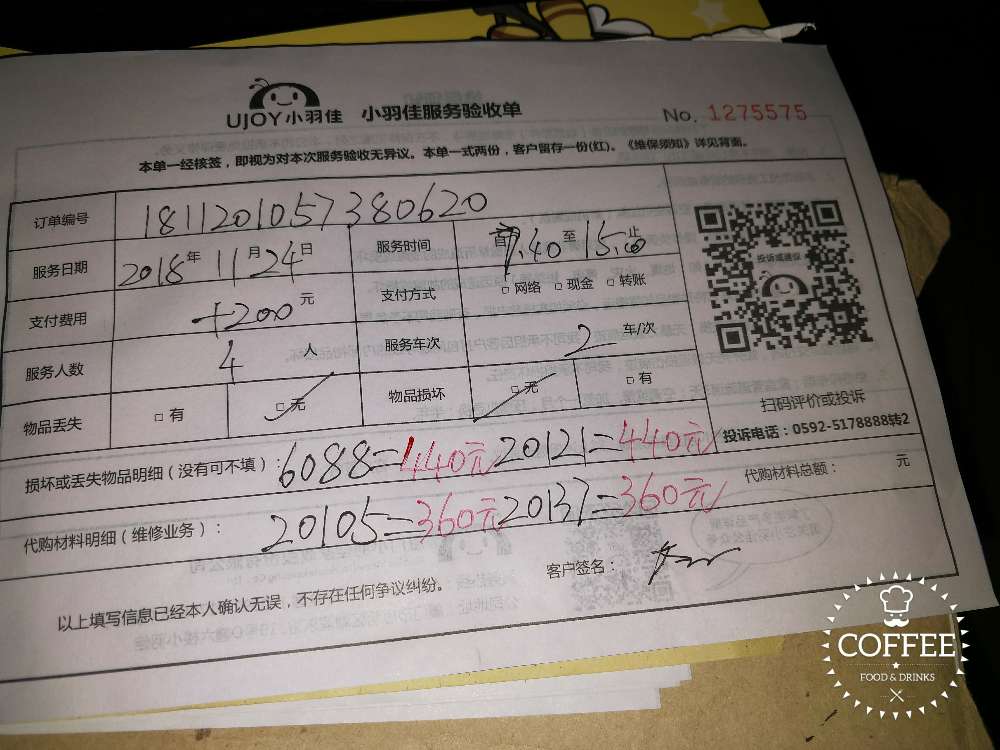 UJOY小羽佳 小羽佳服务验收单 No. 1275575
本单一经接签，即视为对本次服务验收无异议。本单一式两份，客户留存一份(红)。《维保须知》详见背面。
订单编号 1811201057380620
服务日期 2018年11月24日 服务时间 7.40至15.00止
支付费用 +200元 支付方式 □网络 □现金 □转账
服务人数 4人 服务车次 2车/次
物品丢失 □有 □无 物品损坏 □无 □有
投诉或建议
扫码评价或投诉
投诉电话：0592-5178888转2
损坏或丢失物品明细（没有可不填）：6088=440元 20121=440元
代购材料明细（维修业务）：20105=360元 20137=360元 代购材料总额： 元
以上填写信息已经本人确认无误，不存在任何争议纠纷。 客户签名：
COFFEE
FOOD & DRINKS